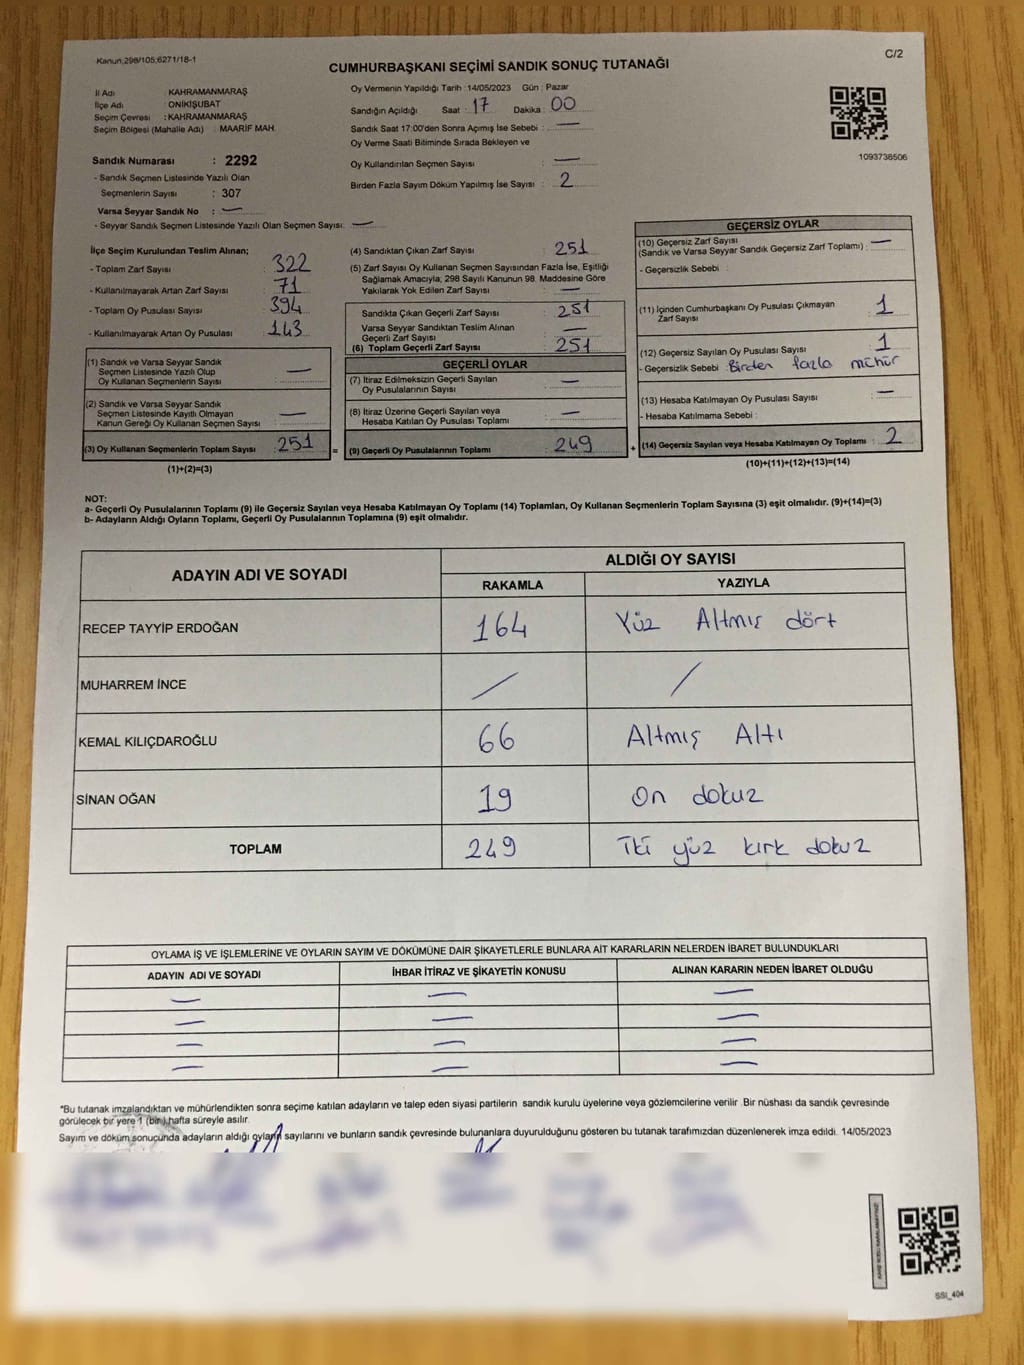 Kanun:298/105;6271/18-1
C/2
CUMHURBAŞKANI SEÇİMİ SANDIK SONUÇ TUTANAĞI
İl Adı : KAHRAMANMARAŞ
İlçe Adı : ONİKİŞUBAT
Seçim Çevresi : KAHRAMANMARAŞ
Seçim Bölgesi (Mahalle Adı) : MAARİF MAH.
Sandık Numarası : 2292
- Sandık Seçmen Listesinde Yazılı Olan
Seçmenlerin Sayısı : 307
Varsa Seyyar Sandık No : —
- Seyyar Sandık Seçmen Listesinde Yazılı Olan Seçmen Sayısı: —
Oy Vermenin Yapıldığı Tarih : 14/05/2023 Gün : Pazar
Sandığın Açıldığı Saat : 17 Dakika : 00
Sandık Saat 17:00'den Sonra Açımış İse Sebebi : —
Oy Verme Saati Bitiminde Sırada Bekleyen ve
Oy Kullandırılan Seçmen Sayısı : —
Birden Fazla Sayım Döküm Yapılmış İse Sayısı : 2
1093738506
İlçe Seçim Kurulundan Teslim Alınan;
- Toplam Zarf Sayısı : 322
- Kullanılmayarak Artan Zarf Sayısı : 71
- Toplam Oy Pusulası Sayısı : 394
- Kullanılmayarak Artan Oy Pusulası : 143
(1) Sandık ve Varsa Seyyar Sandık
Seçmen Listesinde Yazılı Olup
Oy Kullanan Seçmenlerin Sayısı : —
(2) Sandık ve Varsa Seyyar Sandık
Seçmen Listesinde Kayıtlı Olmayan
Kanun Gereği Oy Kullanan Seçmen Sayısı : —
(3) Oy Kullanan Seçmenlerin Toplam Sayısı : 251
(1)+(2)=(3)
=
(4) Sandıktan Çıkan Zarf Sayısı : 251
(5) Zarf Sayısı Oy Kullanan Seçmen Sayısından Fazla İse, Eşitliği
Sağlamak Amacıyla; 298 Sayılı Kanunun 98. Maddesine Göre
Yakılarak Yok Edilen Zarf Sayısı : —
Sandıkta Çıkan Geçerli Zarf Sayısı : 251
Varsa Seyyar Sandıktan Teslim Alınan
Geçerli Zarf Sayısı : —
(6) Toplam Geçerli Zarf Sayısı : 251
GEÇERLİ OYLAR
(7) İtiraz Edilmeksizin Geçerli Sayılan
Oy Pusulalarının Sayısı : —
(8) İtiraz Üzerine Geçerli Sayılan veya
Hesaba Katılan Oy Pusulası Toplamı : —
(9) Geçerli Oy Pusulalarının Toplamı : 249
+
GEÇERSİZ OYLAR
(10) Geçersiz Zarf Sayısı
(Sandık ve Varsa Seyyar Sandık Geçersiz Zarf Toplamı) : —
- Geçersizlik Sebebi :
(11) İçinden Cumhurbaşkanı Oy Pusulası Çıkmayan
Zarf Sayısı : 1
(12) Geçersiz Sayılan Oy Pusulası Sayısı : 1
- Geçersizlik Sebebi : Birden fazla mühür
(13) Hesaba Katılmayan Oy Pusulası Sayısı : —
- Hesaba Katılmama Sebebi :
(14) Geçersiz Sayılan veya Hesaba Katılmayan Oy Toplamı : 2
(10)+(11)+(12)+(13)=(14)
NOT:
a- Geçerli Oy Pusulalarının Toplamı (9) ile Geçersiz Sayılan veya Hesaba Katılmayan Oy Toplamı (14) Toplamları, Oy Kullanan Seçmenlerin Toplam Sayısına (3) eşit olmalıdır. (9)+(14)=(3)
b- Adayların Aldığı Oyların Toplamı, Geçerli Oy Pusulalarının Toplamına (9) eşit olmalıdır.
ADAYIN ADI VE SOYADI
ALDIĞI OY SAYISI
RAKAMLA YAZIYLA
RECEP TAYYİP ERDOĞAN 164 Yüz Altmış dört
MUHARREM İNCE / /
KEMAL KILIÇDAROĞLU 66 Altmış Altı
SİNAN OĞAN 19 On dokuz
TOPLAM 249 İki yüz kırk dokuz
OYLAMA İŞ VE İŞLEMLERİNE VE OYLARIN SAYIM VE DÖKÜMÜNE DAİR ŞİKAYETLERLE BUNLARA AİT KARARLARIN NELERDEN İBARET BULUNDUKLARI
ADAYIN ADI VE SOYADI İHBAR İTİRAZ VE ŞİKAYETİN KONUSU ALINAN KARARIN NEDEN İBARET OLDUĞU
— — —
— — —
— — —
— — —
*Bu tutanak imzalandıktan ve mühürlendikten sonra seçime katılan adayların ve talep eden siyasi partilerin sandık kurulu üyelerine veya gözlemcilerine verilir. Bir nüshası da sandık çevresinde
görülecek bir yere 1 (bir) hafta süreyle asılır.
Sayım ve döküm sonucunda adayların aldığı oyların sayılarını ve bunların sandık çevresinde bulunanlara duyurulduğunu gösteren bu tutanak tarafımızdan düzenlenerek imza edildi. 14/05/2023
SSI_404